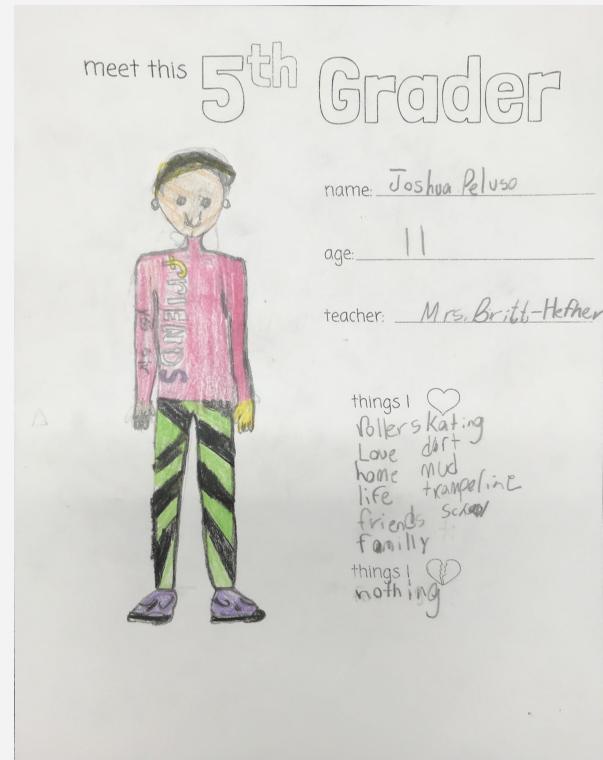 meet this 5th Grader
name: Joshua Peluso
age: 11
teacher: Mrs. Britt-Hefner
FRIENDS
things I
Rollerskating
Love dirt
home mud
life trampeline
friends
familly
things I
nothing